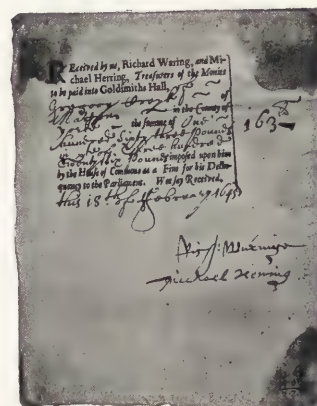 REceived by me, Richard Waring, and Mi-
chael Herring, Treasurers of the Monies
to be paid into Goldsmiths Hall,
Gregory of
in the County of
Yorke the summe of One
hundred sixty three Pounds 163
three hundred
twenty six Pounds imposed upon him
by the House of Commons as a Fine for his Delin-
quency to the Parliament. I say Received.
this 18th of February 1645
Rich: Waringe
Michael Herring